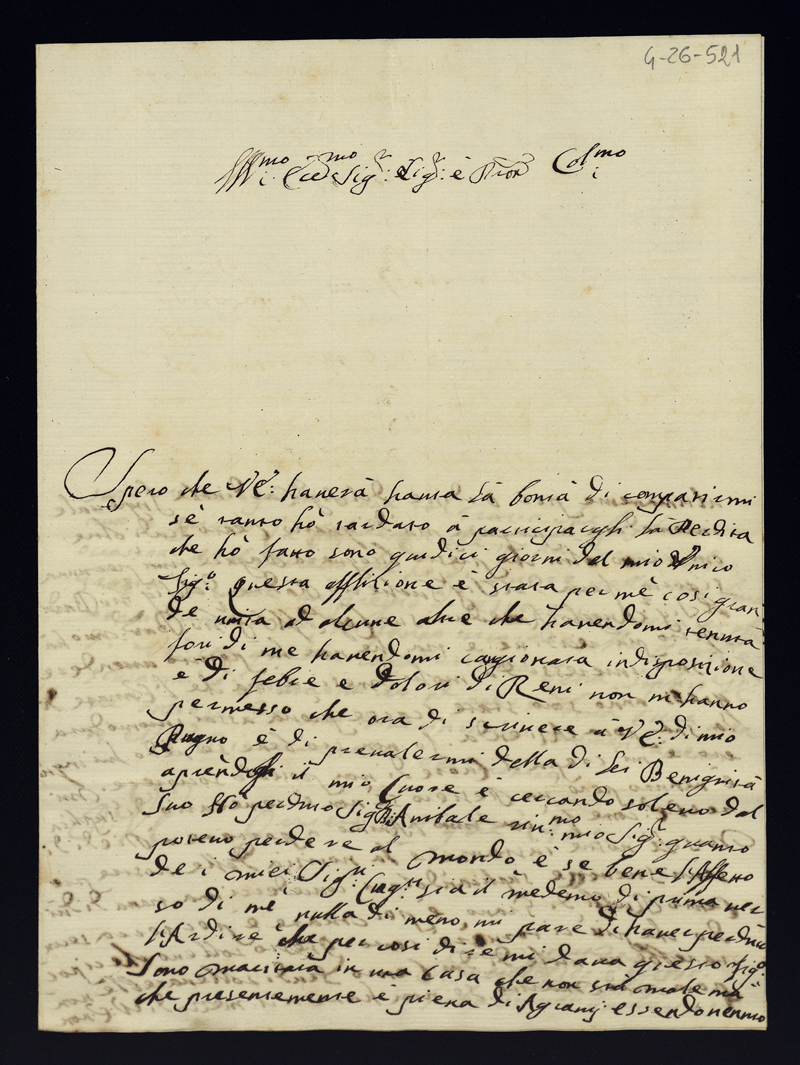 G-26-521
Ill:mo Ecc:mo Sig:r Sig:r è Pron Col:mo
Spero che V.E: hauerà hauta là bontà di compatirmi
sè tanto hò tardato à participargli la Perdita
che hò fatto sono quidici giorni del mio Vnico
fig:o questa afflitione è stata per mè cosi gran
de unita ad alcune altre che hauendomi tenuta
fori di me hauendomi cagionata indisposizione
e di febre e dolori di Reni non m'hanno
permesso che ora di scriuere à V.E: di mio
Pugno è di preualermi della di lei Benignità
aprèndogli il mio Cuore è cercando solleuo dal
suo hò perduto Sig:r Anibale mio Sig:r quanto
poteuo perdere al mondo è se bene l'Affetto
de i miei Sig:ri Cug:ni sia il medemo di prima uer
so di mè nulla di meno mi pare d'hauer perduto
l'Ardire che per cosi dire mi daua questo fig:o
Sono maritata in una Casa che non sià male mà
che presentemente è piena di Agrauij essendouenuto